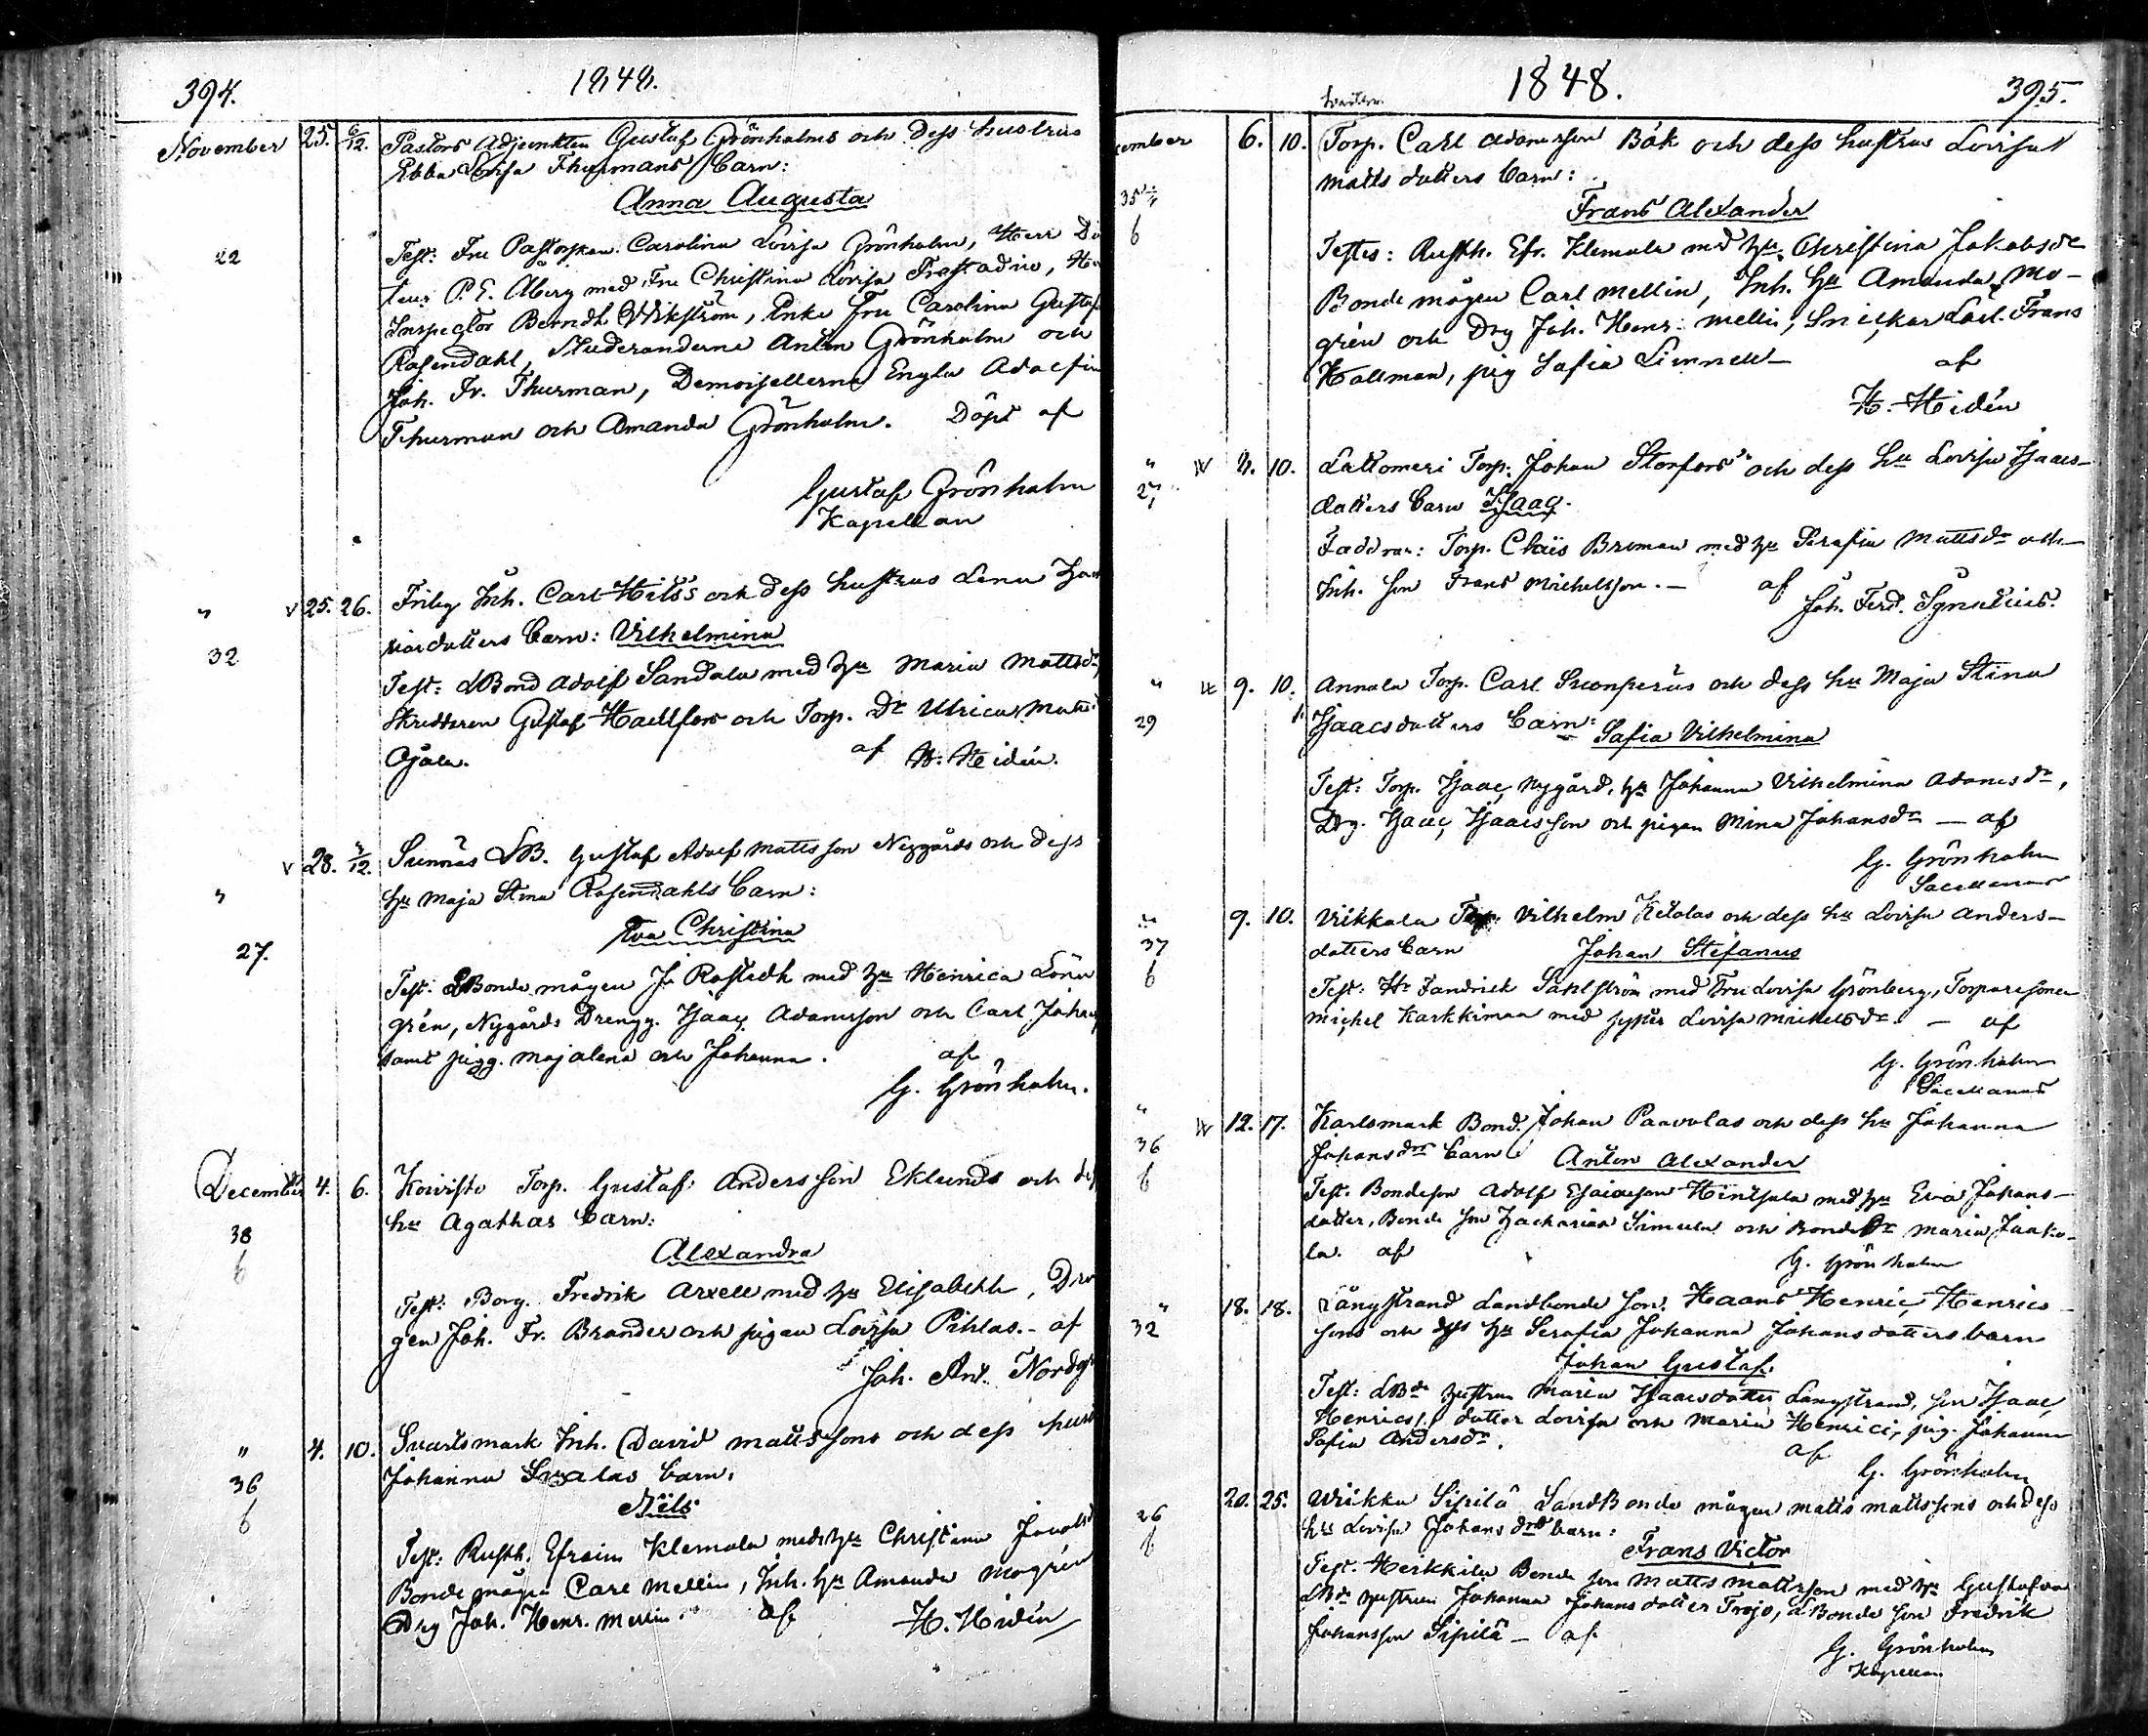 394.
1848.
November 25. 6/12. Pastors Adjunkten Gustaf Grönholms och Dess hustrus
Ebba Lovisa Thurmans Barn:
Anna Augusta
22
Test: Fru Pastorskan Carolina Lovisa Grönholm, Herr Di
teur P. E. Åberg med Fru Christina Lovisa
Inspector Berndt Wikström, Enke Fru Carolina Gustaf
Rosendahl, Studeranderne Anton Grönholm och
Joh. Fr. Thurman, Demoisellerna Engla Adolfin
Thurman och Amanda Grönholm. Döpt af
Gustaf Grönholm
Kapellan
" v 25. 26. Friby Inh. Carl och dess hustrus Lena
dotters Barn: Vilhelmina
32
Test: LBond Adolf Sandala med hu Maria Mattsdr
Skreddaren Gustaf Hallfors och Torp. Dr Ulrica
Ojala. af H. Heidén.
v 28. 3/12. Sunnäs LB. Gustaf Adolf Mattsson Nygårds och dess
" hu Maja Stina Rosendahls Barn:
Eva Christina
27.
Test: LBonde mågen J. Rostedt med hu Henrica Lönn
grén, Nygårds Drengg. Isaac Adamsson och Carl Johan
samt pigg. Majalena och Johanna. af
G. Grönholm.
December 4. 6. Koivisto Torp. Gustaf Andersson Eklunds och dess
hu Agathas Barn:
38
Alexandra
6
Test: Borg. Fredrik Axell med hu Elisabeth, Dre
gen Joh. Fr. Brander och pigan Lovisa Pihlas. - af
Joh. Ant. Nordg
" 4. 10. Svartsmark Inh. David Mattssons och dess hust
Johanna Barn:
36
Nils
6
Test: Rusth. Efraim Klemola med hu Christina Jacobsd
Bonde mågen Carl Mellin, Inh. hu Amanda Mogrén
Drg Joh. Henr. Mellin af H. Hidén
1848.
395.
cember 6. 10. Torp. Carl Adamsson Bök och dess hustrus Lovisa
Matts dotters Barn:
35
Frans Alexander
6
Testes: Rusth. Efr. Klemola med hu Christina Jakobsdr
Bonde mågen Carl Mellin, Inh. hu Amanda Mo-
grén och Drg Joh. Henr. Mellin, Snickar Lärl. Frans
Hallman, pig Safia Linnell - af
H. Hidén
" 4. 10. Lattomeri Torp. Johan Storfors och dess hu Lovisa Isaacs-
27 dotters Barn Isaac.
Faddrar: Torp. Broman med hu Serafia Mattsdr och
Inh. son Frans Michelsson. - af
Joh. Ferd. Ignatius.
" 9. 10. Annala Torp. Carl och dess hu Maja Stina
29 Isaacsdotters Barn: Safia Vilhelmina
Test: Torp. Isaac Nygård, hu Johanna Vilhelmina Adamsdr,
Drg. Isaac Isaacsson och pigan Mina Johansdr - af
G. Grönholm
Sacellanus
" 9. 10. Viikkala Torp. Vilhelm Ketolas och dess hu Lovisa Anders-
37 dotters Barn Johan Stefanus
6
Test: Hr Fändrick Sahlström med Fru Lovisa Grönberg, Torparesonen
Michel Karkkimaa med syster Lovisa Mickelsdr. - af
G. Grönholm
Sacellanus
" 12. 17. Karlsmark Bond. Johan Paavolas och dess hu Johanna
36 Johansdrs Barn Anton Alexander
6
Test. Bondeson Adolf Esaiasson Hintsala med hu Eva Johans-
dotter, Bonde son Zacharias Simula och Bonde Dr Maria Jaako-
la. af G. Grönholm
" 18. 18. Långstrand Landbonde son Haans Henric Henrics
32 sons och dess hu Serafia Johanna Johansdotters barn
Johan Gustaf.
Test: LBde hustrun Maria Isaacsdotter Långstrand, son Isaac
Henricss. dotter Lovisa och Maria Henrici, pig. Johanna
Safia Andersdr. af
G. Grönholm
20. 25. Wiikku Sipilä LandBonde mågen Matts Mattssons och dess
26 hu Lovisa Johans drs barn:
6 Frans Victor
Test. Heikkila Bonde son Matts Mattsson med hu Gustafva
LBds hustrun Johanna Johansdotter Trojo, LBonde son Fredrik
Johansson Sipilä - af
G. Grönholm
Kapellan